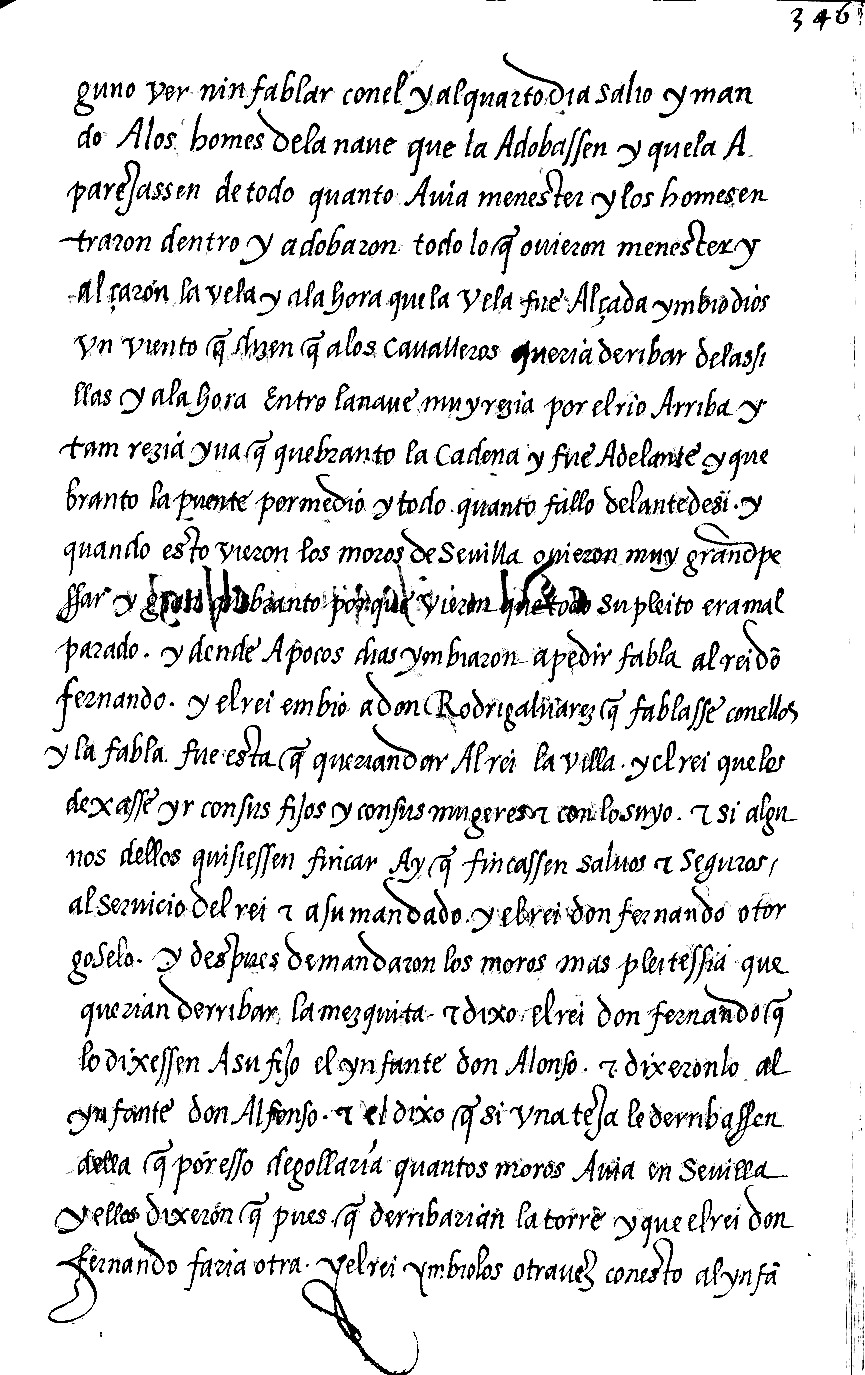 346
guno ver nin fablar conel y alquarto dia salio y man
do Alos homes dela naue que la Adobassen y quela A
parejassen de todo quanto Auia menester y los homes en
traron dentro y adobaron todo lo q̃ ouieron menester y
alçaron la vela y ala hora que la vela fue Alçada ymbio dios
vn viento q̃ dizen q̃ alos Cavalleros queria deribar delassi
llas y ala hora Entro lanaue muy rezia por el rio Arriba y
tam rezia yua q̃ quebranto la Cadena y fue Adelante y que
branto la puente por medio y todo quanto fallo delante desi . y
quando esto vieron los moros de Sevilla ouieron muy grand pe
ssar y quebranto porque vieron que todo su pleito era mal
parado . y dende Apocos dias ymbiaron a pedir fabla al rei dõ
fernando . y el rei embio a don Rodrigaluarez q̃ fablasse conellos
y la fabla fue esta q̃ querian dar Al rei la villa . y el rei que les
dexasse yr con sus fijos y con sus mugeres ⁊ con lo suyo . ⁊ si algu
nos dellos quisiessen fincar Ay q̃ fincassen saluos ⁊ Seguros /
al servicio del rei ⁊ a su mandado . y el rei don fernando otor
goselo . y despues demandaron los moros mas pleitessia que
querian derribar la mezquita . ⁊ dixo el rei don fernando q̃
lo dixessen A su fijo el ynfante don Alonso . ⁊ dixeronlo al
ynfante don Alfonso . ⁊ el dixo q̃ si vna teja le derribassen
della q̃ por esso degollaria quantos moros Auia en Sevilla
y ellos dixeron q̃ pues q̃ derribarian la torre y que el rei don
fernando faria otra . y el rei ymbiolos otra vez con esto al ynfã